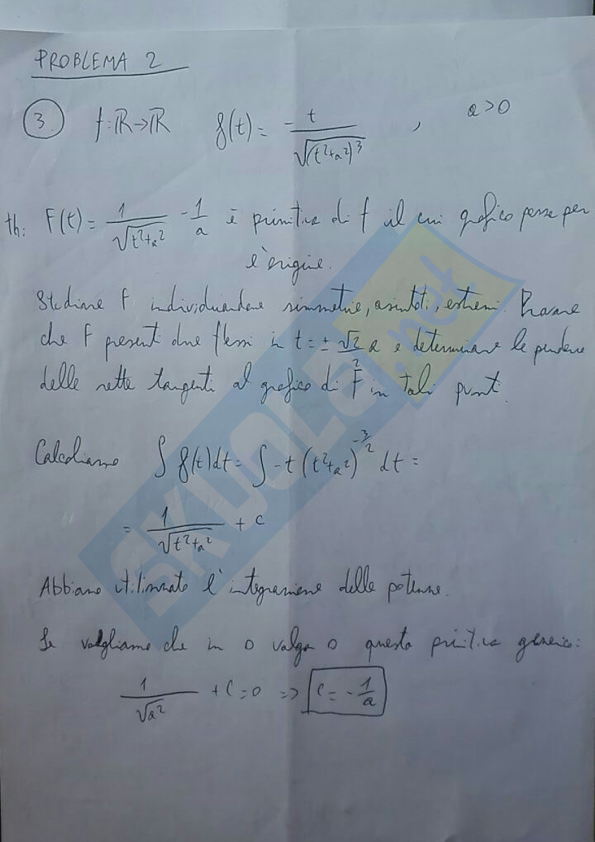 PROBLEMA 2
3. f: ℝ→ℝ f(t) = - t / √(t²+a²)³ , a>0
th: F(t) = 1/√(t²+a²) - 1/a è primitiva di f il cui grafico passa per
l'origine.
Studiare F individuandone simmetrie, asintoti, estremi. Provare
che F presenti due flessi in t = ± √2/2 a e determinare le pendenze
delle rette tangenti al grafico di F in tali punti.
Calcoliamo ∫ f(t)dt = ∫ -t (t²+a²)^(-3/2) dt =
= 1/√(t²+a²) + c
Abbiamo utilizzato l'integrazione delle potenze.
Se vogliamo che in 0 valga 0 questa primitiva generica:
1/√a² + C = 0 => C = - 1/a
SKUOLA.net